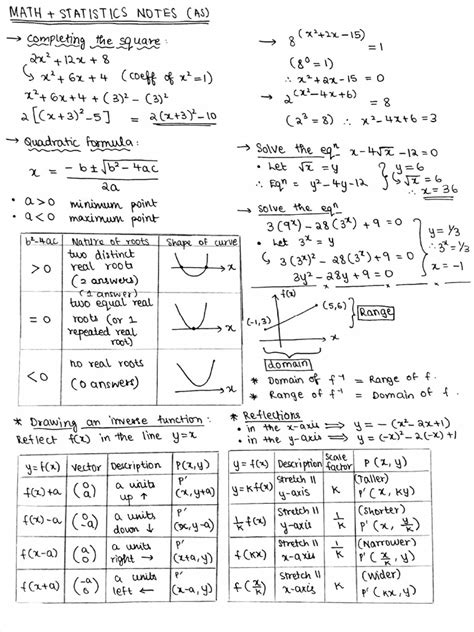 MATH + STATISTICS NOTES (AS)
→ Completing the square:
2x² + 12x + 8
↳ x² + 6x + 4 (coeff of x² = 1)
x² + 6x + 4 + (3)² - (3)²
2[(x+3)² - 5] = 2(x+3)² - 10
→ Quadratic formula:
x = (-b ± √(b² - 4ac)) / 2a
• a > 0 minimum point
• a < 0 maximum point
b²-4ac Nature of roots Shape of curve
> 0 two distinct real roots (2 answers) x
= 0 (1 answer) two equal real roots (or 1 repeated real root) x
< 0 no real roots (0 answers) x
→ 8^(x²+2x-15) = 1
(8⁰ = 1)
∴ x² + 2x - 15 = 0
→ 2^(x²-4x+6) = 8
(2³ = 8) ∴ x² - 4x + 6 = 3
→ Solve the eqⁿ x - 4√x - 12 = 0
• Let √x = y
∴ Eqⁿ = y² - 4y - 12
y = 6
√x = 6
∴ x = 36
→ Solve the eqⁿ
3(9ˣ) - 28(3ˣ) + 9 = 0
• Let 3ˣ = y
3(3ˣ)² - 28(3ˣ) + 9 = 0
3y² - 28y + 9 = 0
y = 1/3
∴ 3ˣ = 1/3
x = -1
f(x)
(-1,3)
(5,6)
Range
x
domain
* Domain of f⁻¹ = Range of f.
* Range of f⁻¹ = Domain of f.
* Drawing an inverse function:
Reflect f(x) in the line y = x
y = f(x) Vector Description P(x,y)
f(x)+a (0 a) a units up ↑ P' (x, y+a)
f(x)-a (0 a) a units down ↓ P' (x, y-a)
f(x-a) (a 0) a units right → P' (x+a, y)
f(x+a) (-a 0) a units left ← P' (x-a, y)
* Reflections
• in the x-axis ⟹ y = -(x² - 2x + 1)
• in the y-axis ⟹ y = (-x)² - 2(-x) + 1
y = f(x) Description Scale factor P(x, y)
y = k f(x) Stretch || y-axis K (Taller) P'(x, ky)
1/k f(x) Stretch || y-axis 1/K (Shorter) P'(x, y/k)
f(kx) Stretch || x-axis 1/K (Narrower) P'(x/k, y)
f(x/k) Stretch || x-axis K (Wider) P'(kx, y)